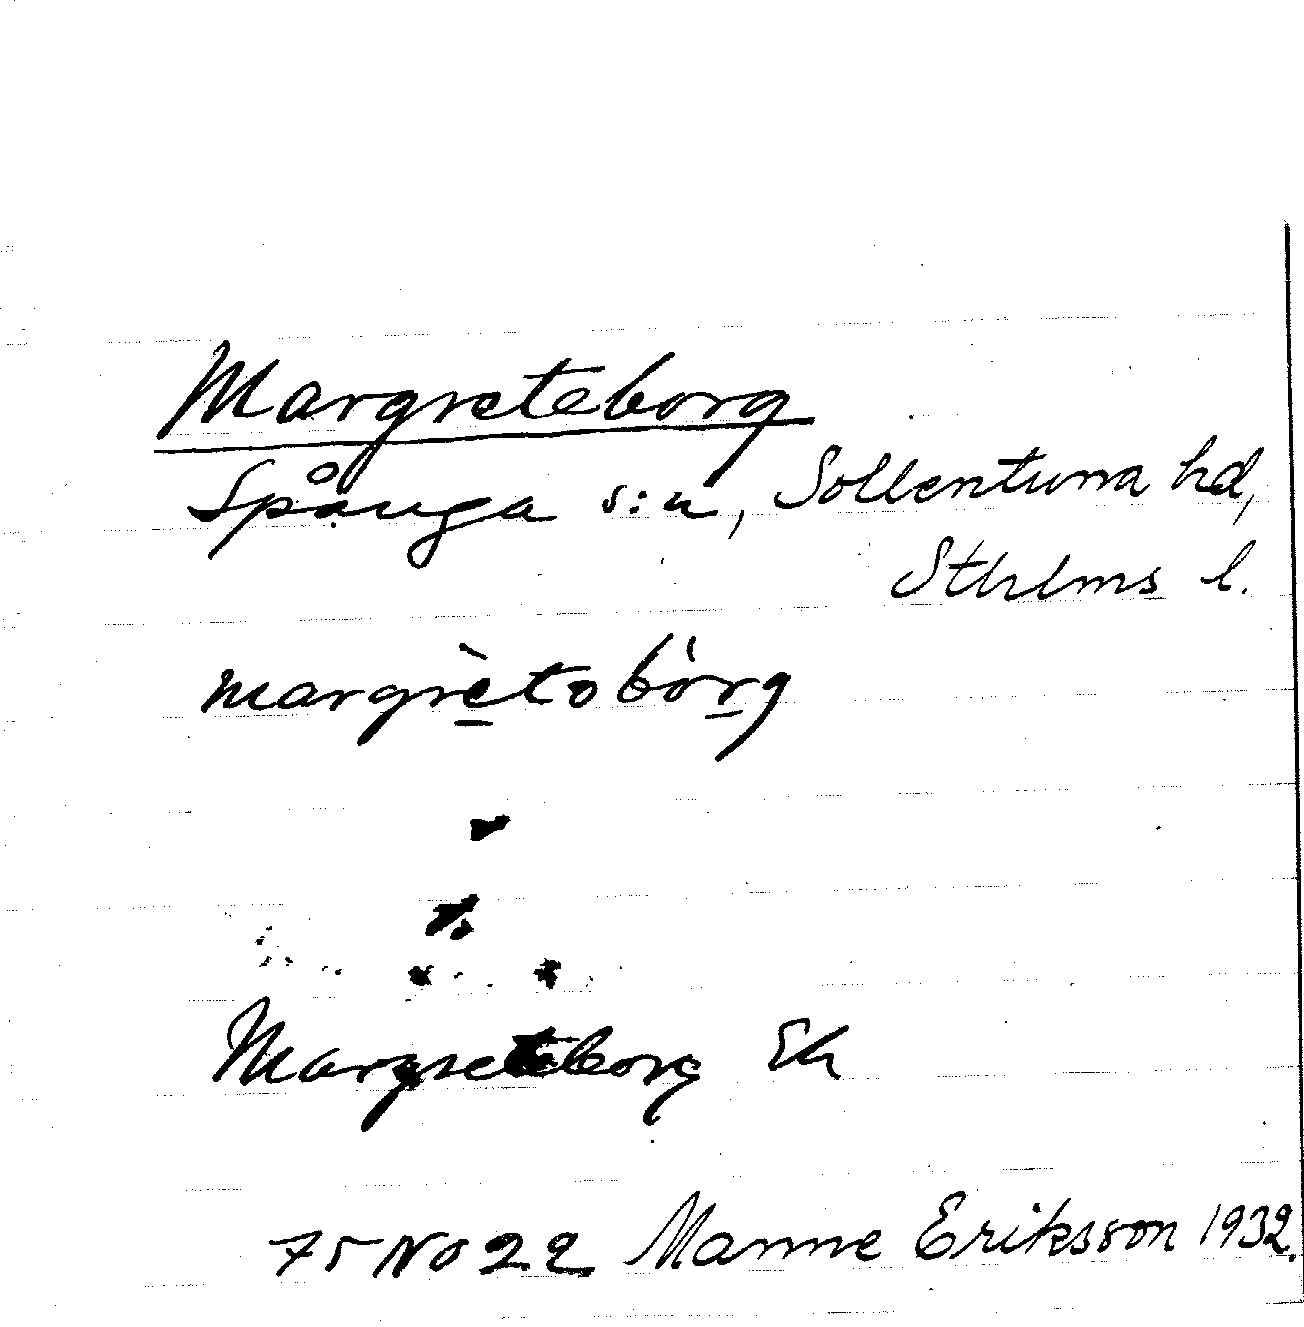 Margreteborg
Spånga s:n, Sollentuna hd,
Sthlms l.
margrètobórg
Margreteborg Ek
75 NO 22 Manne Eriksson 1932.